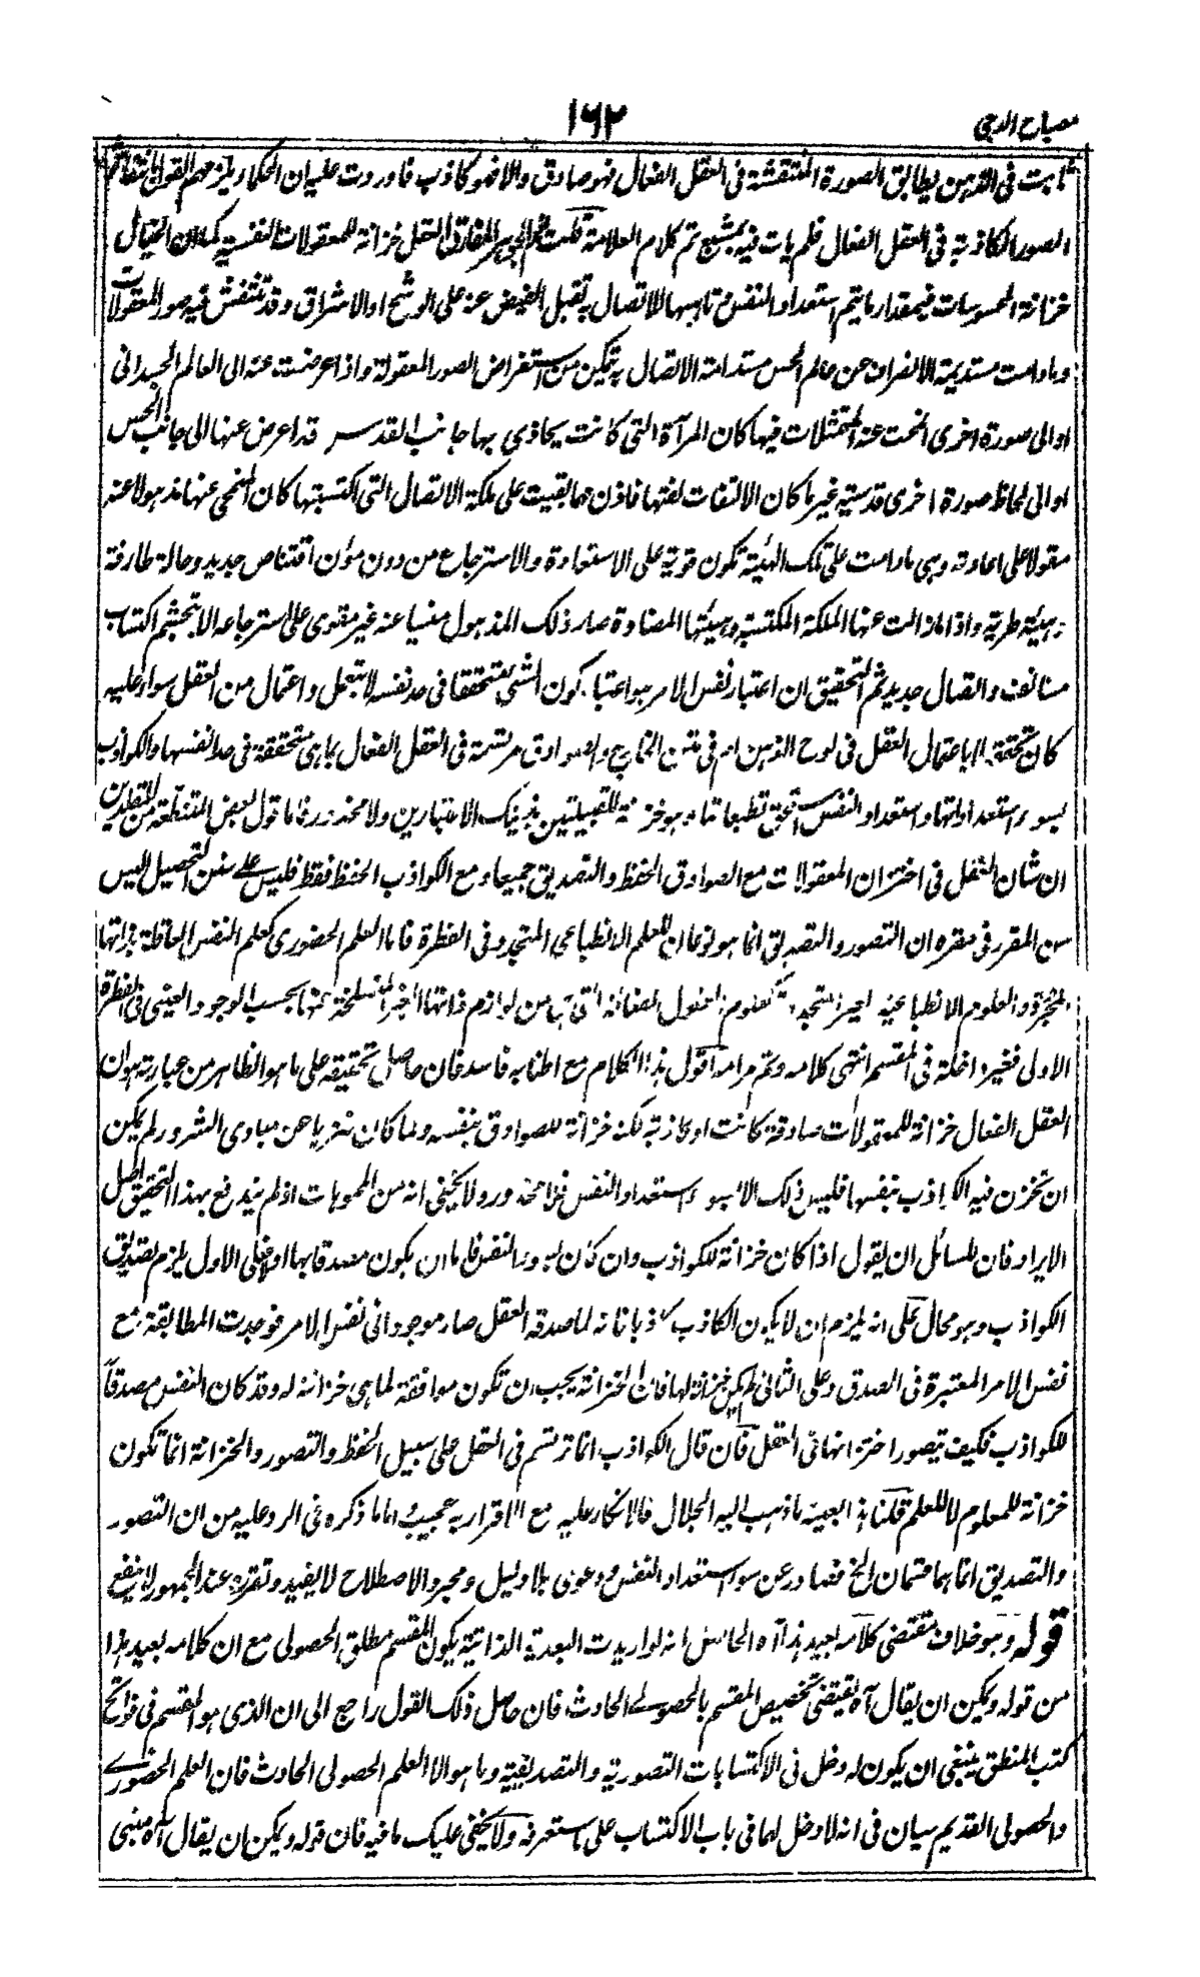 مصباح الدجى
١٦٢
ثابت فى الذهن يطابق الصورة المنتقشة فى العقل الفعال فهو صادق والا فهو كاذب فاوردت عليه ان الحكماء يلزمهم القول بانتقاش
الصور الكاذبة فى العقل الفعال فلم يات فيه بمشبع تم كلام العلامة قلت الجوهر المفارق العقل خزانة للمعقولات النفسية كما ان الخيال
خزانة المحسوسات فبمقدار ما يتم استعداد النفس وتاهبها للاتصال به تقبل الفيض عنه على الرشح او الاشراق وقد تنتقش فيه صور المعقولات
وما دامت مستديمة الانصراف عن عالم الحس مستدامة الاتصال به تمكن من استعراض الصور المعقولة واذا عرضت عنه الى العالم الجسدانى
او الى صورة اخرى انمحت عنه المتمثلات فيها كان المرآة التى كانت يحاذى بها جانب القدس قد اعرض عنها الى جانب الحس
او الى لحاظ صورة اخرى قدسية غير ما كان الالتفات لفتها فاذن مهما بقيت على ملكة الاتصال التى اكتسبتها كان المنمحى عنها مذهولا عنه
مقولا على اعادته وهى ما دامت على تلك الهيئة تكون قوية على الاستعادة والاسترجاع من دون مؤن اقتناص جديد وحالة طارفة
وهيئة طرية واذا ما زالت عنها الملكة المكتسبة وهيئتها المضادة صار ذلك المذهول منسيا عنه غير مقوى على استرجاعه الا بتجشم اكتساب
مستانف واتصال جديد ثم التحقيق ان اعتبار نفس الامر هو اعتبار كون الشئ متحققا فى حد نفسه لا بتعمل واعتمال من العقل سواء عليه
كان تحققه لا باعتمال العقل فى لوح الذهن ام فى متن الخارج والصوادق مرتسمة فى العقل الفعال بما هى متحققة فى حد انفسها والكواذب
بسوء استعداداتها واستعداد النفس وهو خزانة للقبيلتين بذينك الاعتبارين ولا محذور فاما قول بعض المتفلسفة من المقلدين
ان شان العقل فى اختزان المعقولات مع الصوادق الحفظ والتصديق جميعا ومع الكواذب الحفظ فقط فليس على سنن التحصيل اليس
من المقرر فى مقره ان التصور والتصديق انما هو نوعان للعلم الانطباعى المتجدد فى الفطرة فاما العلم الحضورى كعلم النفس العاقلة بذاتها
المجردة والعلوم الانطباعية الغير المتجددة كعلوم العقول الفعالة من لوازم ذاتها الغير المنسلخة عنها بحسب الوجود العينى فى الفطرة
الاولى فغير داخلة فى المقسم انتهى كلامه وتم مرامه اقول هذا الكلام مع اطنابه فاسد فان حاصل تحقيقه على ما هو الظاهر من عبارته هو ان
العقل الفعال خزانة للمعقولات صادقة كانت او كاذبة لكنه خزانة للصوادق بنفسه ولما كان منزها عن مبادى الشرور لم يكن
ان تخزن فيه الكواذب بنفسها فليس ذلك الا بسوء استعداد النفس فلا محذور ولا يخفى انه من المموهات اذ لم يندفع بهذا التحقيق اصل
الايراد فان للسائل ان يقول اذا كان خزانة للكواذب وان كان بسوء النفس فاما ان يكون مصدقا بها او لا فعلى الاول يلزم تصديق
الكواذب وهو محال على انه يلزم ان لا يكون الكاذب كاذبا فانه لما صدقه العقل صار موجودا فى نفس الامر فوجدت المطابقة مع
نفس الامر المعتبرة فى الصدق وعلى الثانى لم يكن خزانة لها فان الخزانة يجب ان تكون موافقة لما هى خزانة له وقد كان النفس مصدقاً
للكواذب فكيف تيصور اختزانها فى العقل فان قال الكواذب انما ترتسم فى العقل على سبيل الحفظ والتصور والخزانة انما تكون
خزانة للمعلوم لا للعلم قلنا هذا بعينه ما ذهب اليه الجلال فالانكار عليه مع الاقرار به عجيب واما ما ذكره فى الرد عليه من ان التصور
والتصديق انما هما قسمان الخ فصادر عن سوء استعداد النفس ودعوى بلا دليل ومجرد الاصطلاح لا يفيد وتقرره عند الجمهور لا ينفع
قوله وهو خلاف مقتضى كلامه بعيد هذا آه الحاصل انه لو اريدت البعدية الذاتية يكون المقسم مطلق الحصولى مع ان كلامه بعيد هذا
من قوله ويمكن ان يقال آه يقتضى تخصيص المقسم بالحصولى الحادث فان حاصل ذلك القول راجع الى ان الذى هو المقسم فى فواتح
كتب المنطق ينبغى ان يكون له دخل فى الاكتسابات التصورية والتصديقية وما هو الا العلم الحصولى الحادث فان العلم الحضورى
والحصولى القديم سيان فى انه لا دخل لهما فى باب الاكتساب على ما ستعرفه ولا يخفى عليك ما فيه فان قوله ويمكن ان يقال آه مبنى